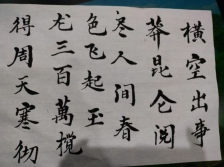 橫空出事
莽昆仑阅
尽人间春
色飞起玉
龙三百萬搅
得周天寒彻